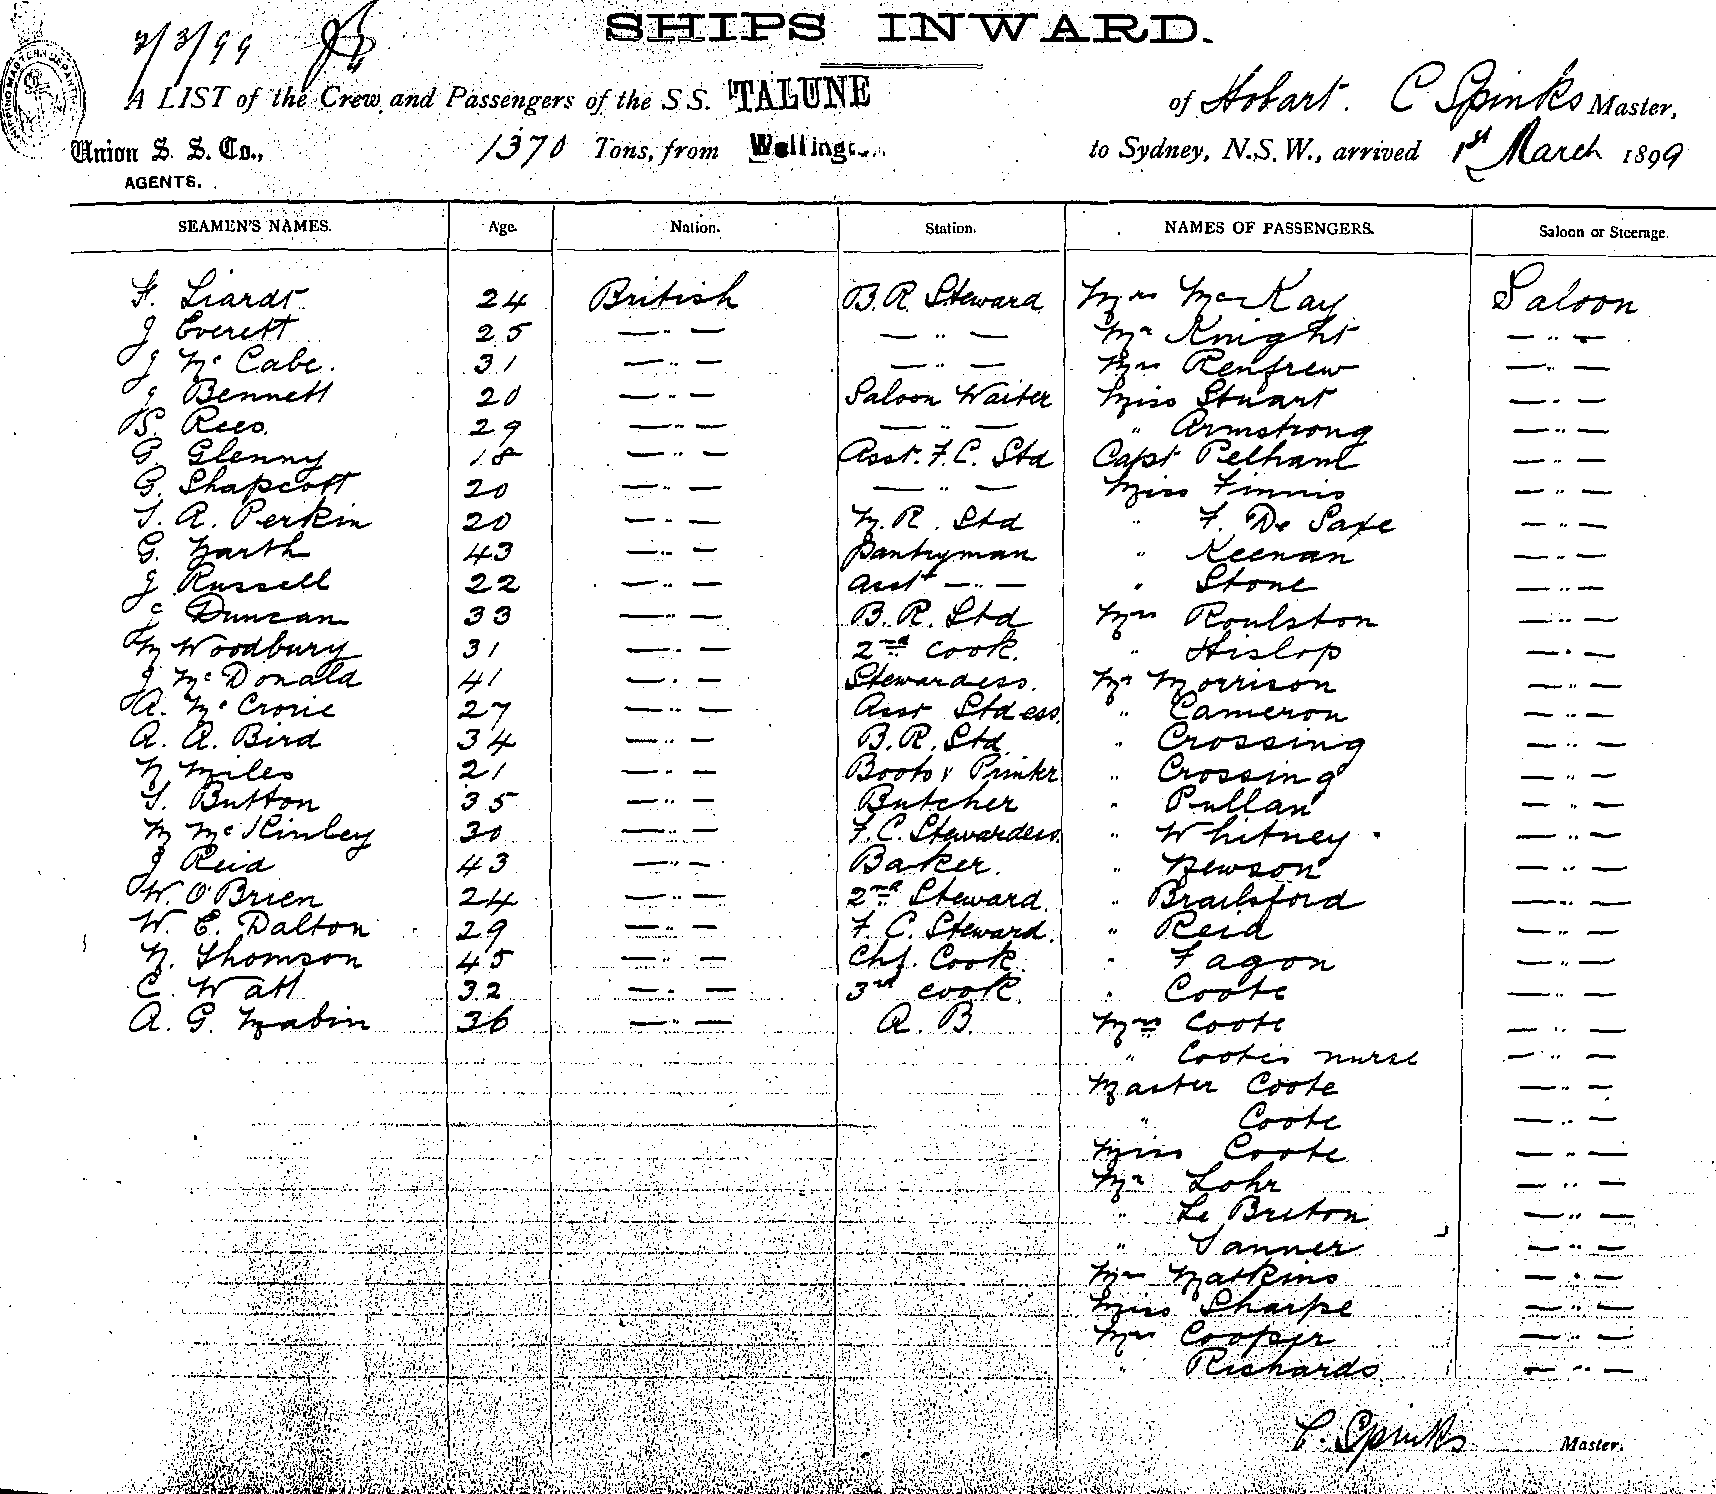 2/3/99
SHIPS INWARD.
A LIST of the Crew and Passengers of the S.S. TALUNE of Hobart. C Spinks Master,
Union S. S. Co., 1370 Tons, from to Sydney, N.S.W., arrived 1st March 1899
AGENTS.
SEAMEN'S NAMES. Age. Nation. Station. NAMES OF PASSENGERS. Saloon or Steerage.
F. Liardt 24 British B.R. Steward Mrs McKay Saloon
J Everett 25 — " — — " — Mr Knight — " —
J McCabe. 31 — " — — " — Mrs Renfrew — " —
J Bennett 20 — " — Saloon Waiter Miss Stuart — " —
S. Rees. 29 — " — — " — " Armstrong — " —
G Glenny 18 — " — Asst. F.C. Std Capt Pelham — " —
G. Shapcott 20 — " — — " — Miss Finnis — " —
S. A. Perkin 20 — " — M.R. Std " F. De Saxe — " —
G. 43 — " — Pantryman " Keenan — " —
J Russell 22 — " — Asst — " — " Stone — " —
Duncan 33 — " — B.R. Std Mrs Roulston — " —
M Woodbury 31 — " — 2nd Cook. " Hislop — " —
J McDonald 41 — " — Stewardess. Mr Morrison — " —
A. McCrorie 27 — " — Asst Stdess " Cameron — " —
A. A. Bird 34 — " — B.R. Std. " Crossing — " —
N Miles 21 — " — Boots & Printer " Crossing — " —
S. Button 35 — " — Butcher " Pullan — " —
M McKinley 30 — " — F.C. Stewardess. " Whitney — " —
J Reid 43 — " — Baker. " Newson — " —
W. O'Brien 24 — " — 2nd Steward. " Brailsford — " —
W. E. Dalton 29 — " — F.C. Steward. " Reid — " —
N. Thomson 45 — " — Chf. Cook. " Fagon — " —
C. Watt 32 — " — 3rd Cook. " Coote — " —
A. G. Mabin 36 — " — A.B. Mrs Coote — " —
" Cootes nurse — " —
Master Coote — " —
" Coote — " —
Miss Coote — " —
Mr Lohr — " —
" Le Breton — " —
" Sanner — " —
Mr Watkins — " —
Miss Sharpe — " —
Mrs Cooper — " —
" Richards. — " —
C. Spinks Master.